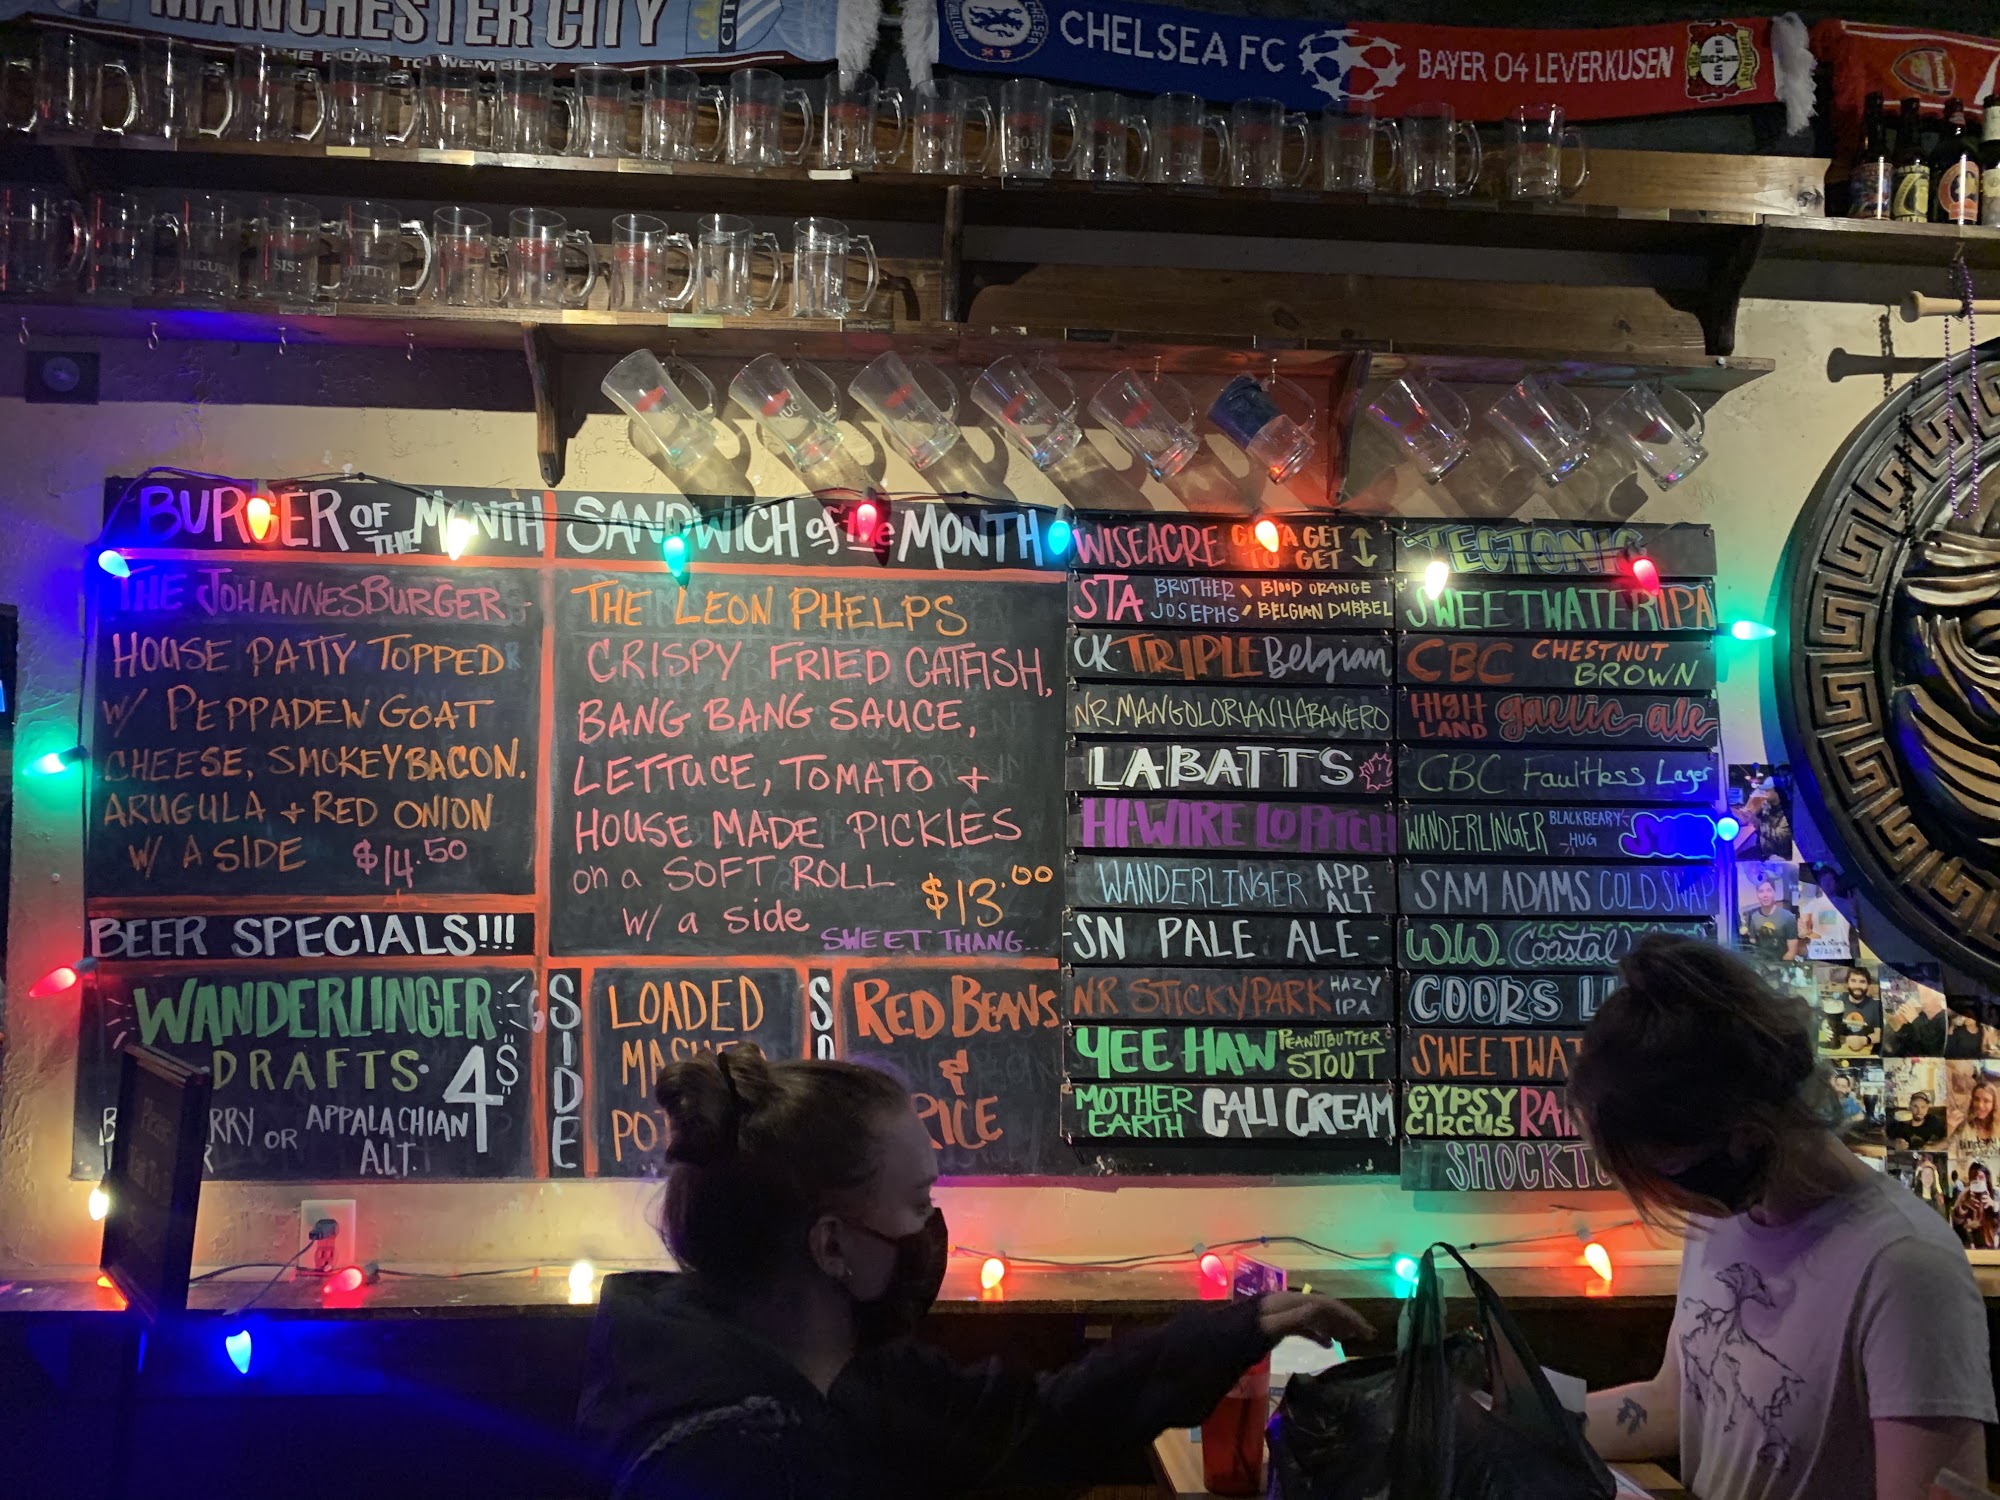 MANCHESTER CITY
THE ROAD TO WEMBLEY
CHELSEA FC
BAYER 04 LEVERKUSEN
SIS
BURGER OF THE MONTH
THE JOHANNESBURGER
HOUSE PATTY TOPPED
W/ PEPPADEW GOAT
CHEESE, SMOKEY BACON.
ARUGULA + RED ONION
W/ A SIDE $14.50
BEER SPECIALS!!!
WANDERLINGER
DRAFTS 4$
RRY OR APPALACHIAN
ALT.
SANDWICH of the MONTH
THE LEON PHELPS
CRISPY FRIED CATFISH,
BANG BANG SAUCE,
LETTUCE, TOMATO +
HOUSE MADE PICKLES
on a SOFT ROLL
W/ a side $13.00
SWEET THANG...
SIDE
LOADED
MASHED
POT
RED BEANS
&
RICE
WISEACRE GOTTA GET TO GET
STA BROTHER JOSEPHS BLOOD ORANGE BELGIAN DUBBEL
CK TRIPLE Belgian
NR MANGOLORIAN HABANERO
LABATT'S
HI-WIRE LO PITCH
WANDERLINGER APP. ALT.
-SN PALE ALE-
NR STICKY PARK HAZY IPA
YEE HAW PEANUTBUTTER STOUT
MOTHER EARTH CALI CREAM
TECTONIC
SWEETWATER IPA
CBC CHESTNUT BROWN
HIGH LAND gaelic ale
CBC Faultless Lager
WANDERLINGER BLACKBEARY HUG
SAM ADAMS COLD SNAP
W.W. Coastal
COORS L
SWEETWA
GYPSY CIRCUS RA
SHOCKT